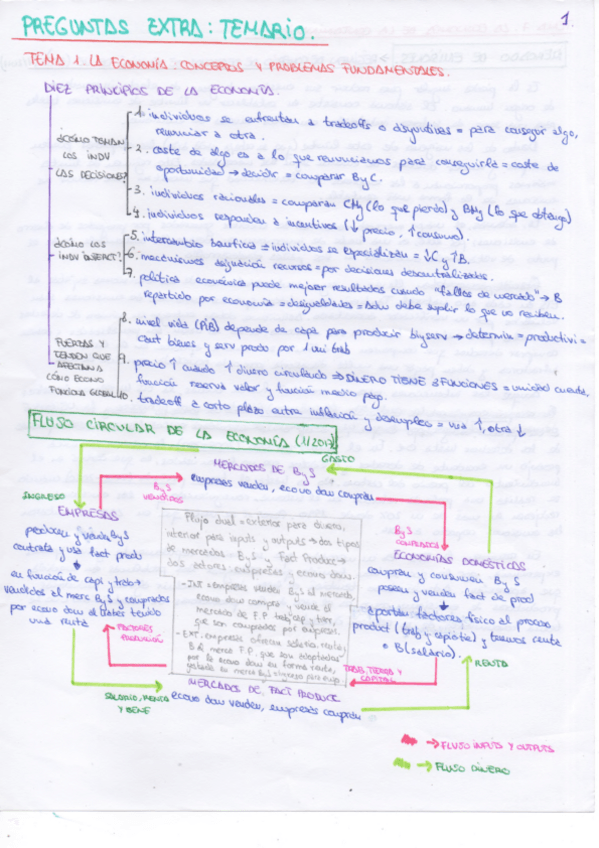 1.
PREGUNTAS EXTRA: TEMARIO.
TEMA 1. LA ECONOMÍA: CONCEPTOS Y PROBLEMAS FUNDAMENTALES.
DIEZ PRINCIPIOS DE LA ECONOMÍA.
¿CÓMO TOMAN
LOS INDV
LAS DECISIONES?
1. individuos se enfrentan a tradeoffs o disyuntivas = para conseguir algo,
renunciar a otra.
2. coste de algo es a lo que renunciamos para conseguirla = coste de
oportunidad → decidir = comparar B y C.
3. individuos racionales = comparan CMg (lo que pierdo) y BMg (lo que obtengo)
4. individuos responden a incentivos (↓ precio, ↑ consumo).
¿CÓMO LOS
INDV INTERACT?
5. intercambio beneficia = individuos se especializan = ↓C y ↑B.
6. mecanismos asignación recursos = por decisiones descentralizadas.
7. política económica puede mejorar resultados cuando "fallos de mercado" → B
repartido por economía = desigualdades = debe suplir lo que no reciben.
FUERZAS Y
TENDEN QUE
AFECTAN A
CÓMO ECONO
FUNCIONA GLOBAL
8. nivel vida (PIB) depende de capc para producir bi y serv → determina = productivi =
cant bienes y serv produ por 1 uni trab
9. precio ↑ cuando ↑ dinero circulando ⇒ DINERO TIENE 3 FUNCIONES = unidad cuenta,
función reserva valor y función medio pago.
10. tradeoff a corto plazo entre inflación y desempleo = una ↑, otra ↓
FLUJO CIRCULAR DE LA ECONOMÍA (1/2017)
GASTO
MERCADOS DE B y S
empresas venden, econo dom compran
INGRESO
B y S
VENDIDOS
B y S
COMPRADOS
EMPRESAS
producen y venden B y S
contrata y usa fact produ
en función de capi y trab →
vendidos al merc B y S y comprados
por econo dom al haber tenido
una renta
Flujo dual = exterior para dinero,
interior para inputs y outputs → dos tipos
de mercados B y S y Fact Produc →
dos actores empresas y econo dom.
- INT = empresas venden B y S al mercado,
econo dom compra y vende al
mercado de F.P. trab, cap y tierr,
que son comprados por empresas.
- EXT. empresas ofrecen salario, renta y
B a merc F.P. que son
por la econo dom en forma renta,
ECONOMÍAS DOMÉSTICAS
compran y consumen B y S
poseen y venden fact de prod
aportan factores físico al proceso
product (trab y capi o tie) y tenemos renta
o B (salario).
FACTORES
PRODUCCIÓN
TRAB, TIERRA Y
CAPITAL
RENTA
MERCADOS DE FACT PRODUCC
econo dom venden, empresas compran
SALARIO, RENTA
Y BENE
→ FLUJO INPUTS Y OUTPUTS
→ FLUJO DINERO